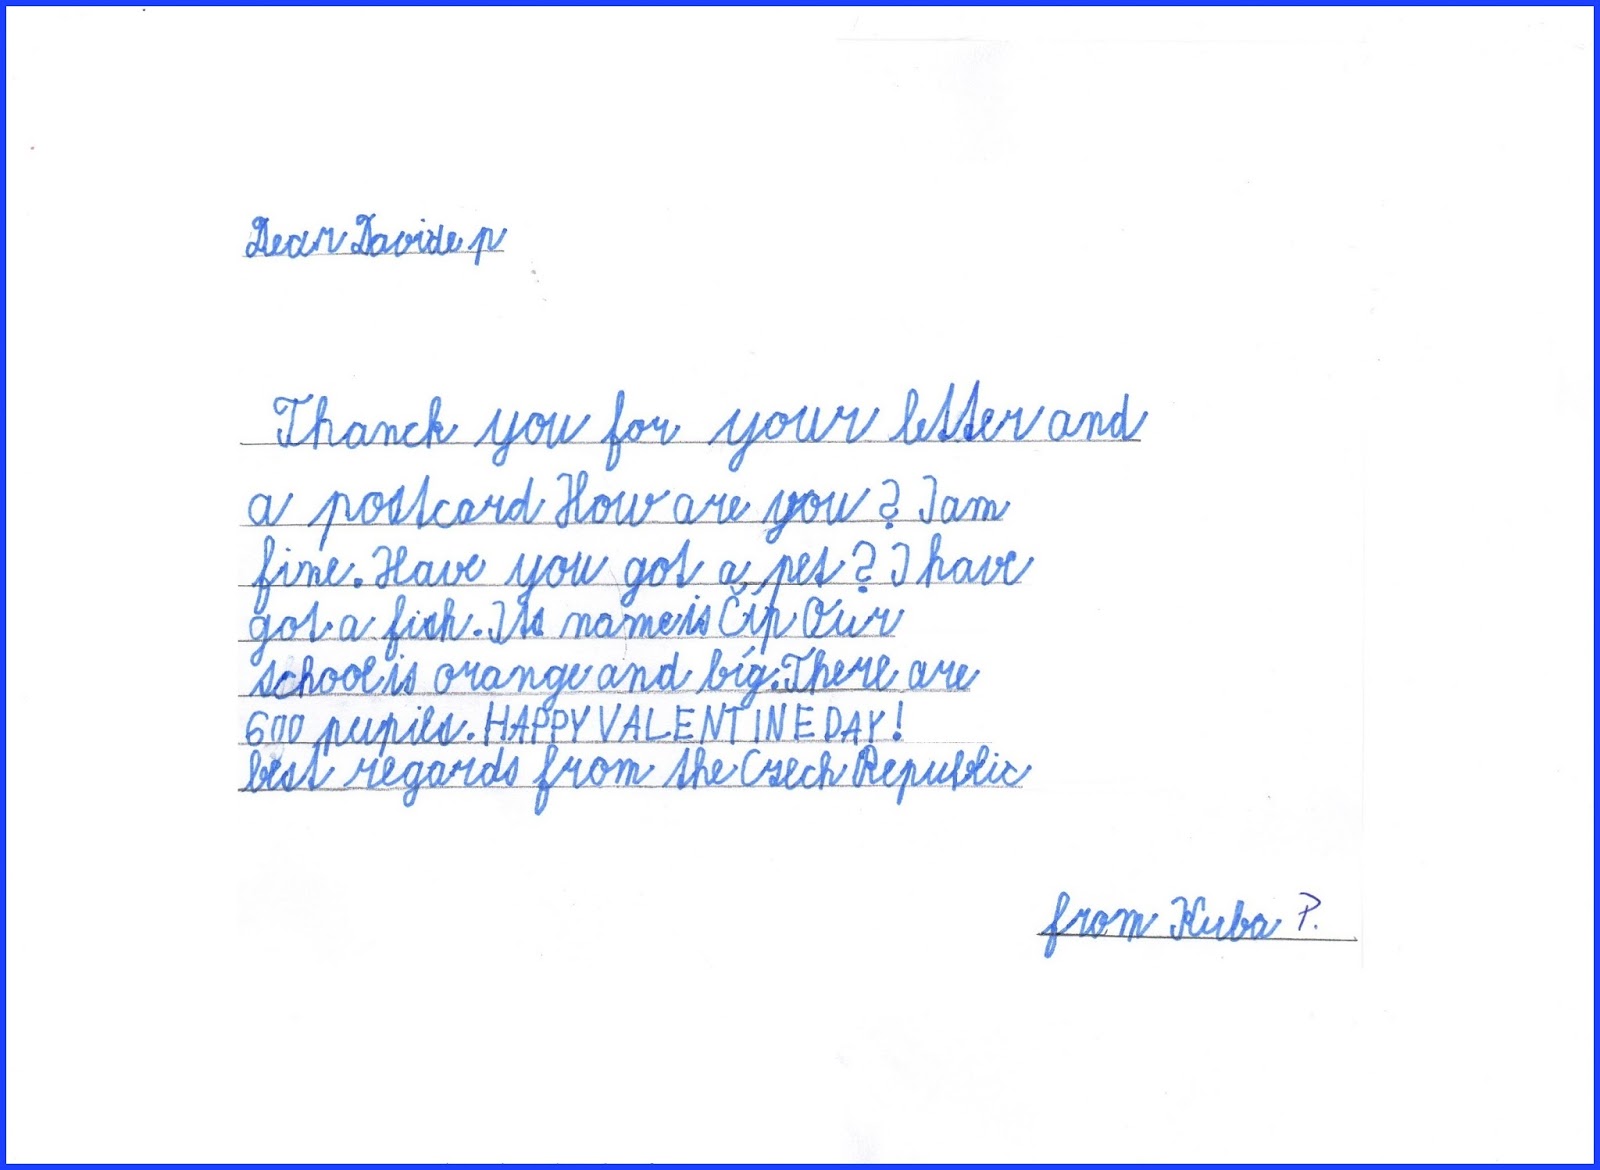 Dear Davide p
Thanck you for your letter and
a postcard How are you? I am
fine. Have you got a pet? I have
got a fish. Its name is Číp Our
school is orange and bíg. There are
600 pupils. HAPPY VALENTINE DAY!
best regards from the Czech Republic
from Kuba P.